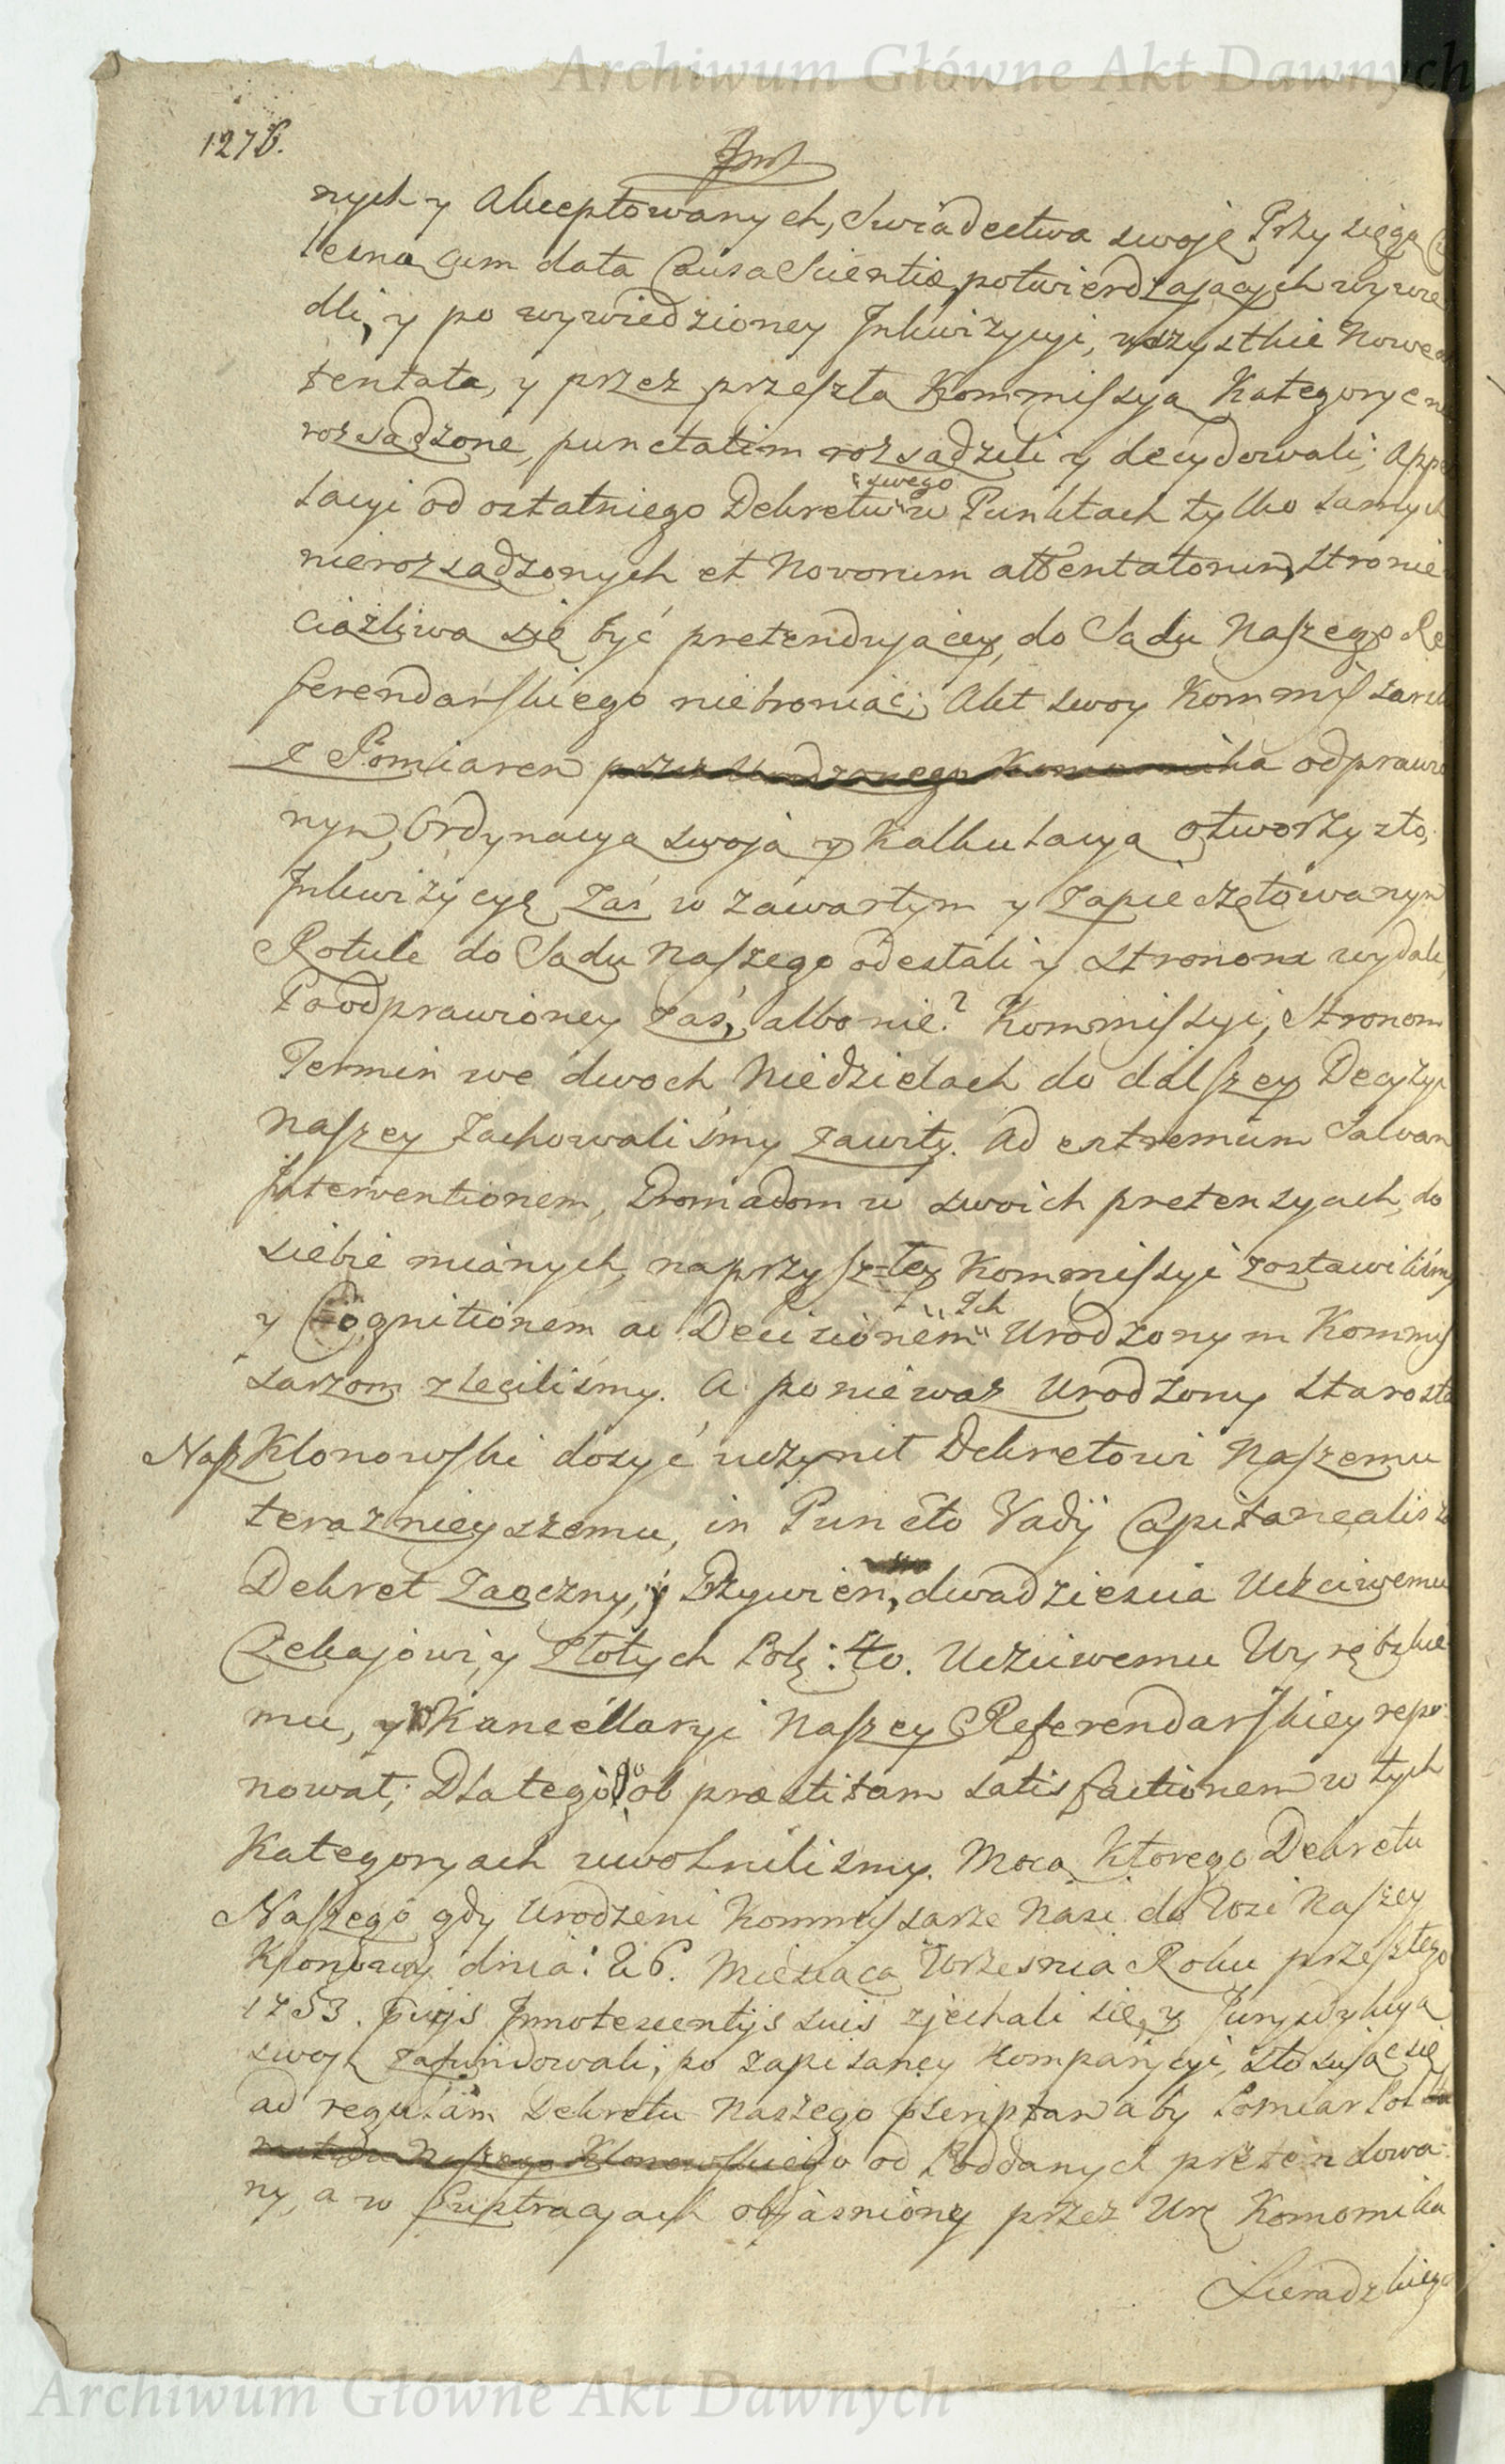 Archiwum Główne Akt Dawnych
1276.
nych y Akceptowanych, Swiadectwa swoje Przysięgą
lesną cum data Causa Scientiæ potwierdzających wywie
dli, y po wywiedzioney Inkwizycyi, wszystkie Nowe at
tentata, y przez przeszłą Kommissyą Kategoryczne
rozsądzone, punctatim rozsądzili y decydowali; Appel
lacyi od ostatniego Dekretu swego w Punktach tylko samych
nierozsądzonych et Novorum attentatorum, stronie
ciążliwą się być pretendującey, do Sądu Naszego Re
ferendarskiego niebroniąc; Akt swoy Kommissarski
z Pomiarem przez Urodzonego Komornika odprawio
nym, Ordynacyą swoją y Kalkulacyą otworzysto,
Inkwizycyę zaś w zawartym y zapieczętowanym
Rotule do Sądu Naszego odesłali y stronom wydali,
Po odprawioney zaś, albo nie? Kommissyi, Stronom
Termin we dwoch Niedzielach do dalszey Decyzyi
Naszey zachowaliśmy zawity. Ad extremum Salvam
Interventionem, Gromadom w swoich pretensyach, do
siebie mianych, na przyszłey Kommissyi zostawiliśmy
y Cognitionem ac Decisionem Ich Urodzonym Kommis
sarzom zleciliśmy. A ponieważ Urodzony Starosta
Nasz Klonowski dosyć uczynił Dekretowi Naszemu
teraznieyszemu, in Puncto Vadij Capitanealis za
Dekret Zaoczny, Grzywien, dwadziescia Uczciwemu
Czekajowi, y Złotych Pols: 40. Uczciwemu Wyrębskie
mu, y Kancellaryi Naszey Referendarskiey repo
nował; Dlatego ob præstitam satisfactionem w tych
Kategoryach uwolniliśmy. Mocą Ktorego Dekretu
Naszego gdy Urodzeni Kommissarze Nasi do Wsi Naszey
Klonowy dnia: 26. Miesiąca Wrzesnia Roku przeszłego
1753. Innotescentijs suis zjechali się, y Jurysdykcyą
swoją zafundowali, po zapisaney Komparycyi, stosując się
ad regulam Dekretu Naszego præscriptam aby Pomiar Pol
Naszego Klonowskiego od Poddanych pretendowa
ny, a w Lustracyach objasniony przez Ur. Komornika
Sieradzkiego
Archiwum Główne Akt Dawnych